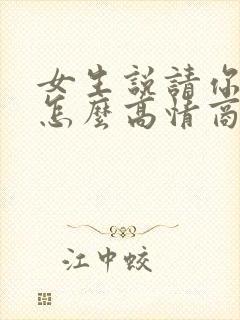 女生說請你
怎麼高情商
江中蛟